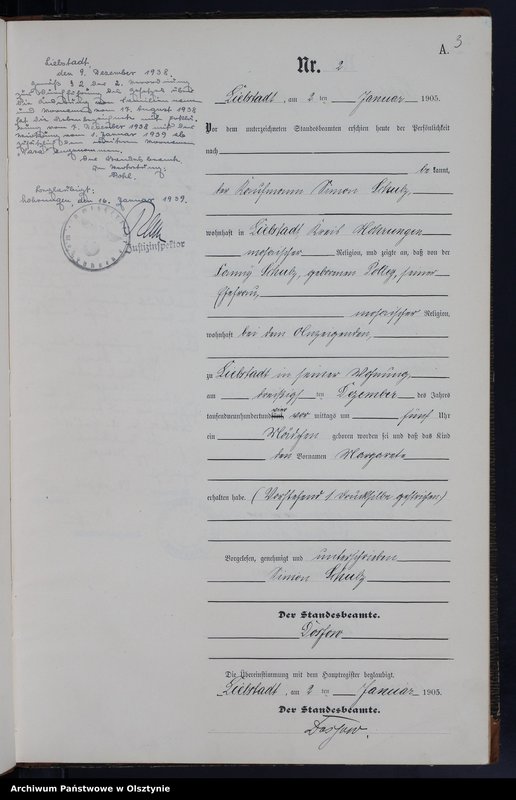 A. 3
Nr. 2
Liebstadt, am 2 ten Januar 1905.
Vor dem unterzeichneten Standesbeamten erschien heute der Persönlichkeit
nach
be kannt,
der Kaufmann Simon Schulz,
wohnhaft in Liebstadt Kreis Mohrungen
mosaischer Religion, und zeigte an, daß von der
Fanny Schulz, geborenen seiner
Ehefrau,
mosaischer Religion,
wohnhaft bei dem Anzeigenden,
zu Liebstadt in seiner Wohnung,
am dreißigsten ten Dezember des Jahres
tausendneunhundertund vier vor mittags um fünf Uhr
ein Mädchen geboren worden sei und daß das Kind
den Vornamen Margarete
erhalten habe. (Vorstehend 1 Druckselbe gestrichen)
Vorgelesen, genehmigt und unterschrieben
Simon Schulz
Der Standesbeamte.
Die Übereinstimmung mit dem Hauptregister beglaubigt.
Liebstadt, am 2 ten Januar 1905.
Der Standesbeamte.
Liebstadt,
den 9. Dezember 1938.
Gemäß § 2 der 2. Verordnung
zur Durchführung des Gesetzes über
die Änderung von Familiennamen
und Vornamen vom 17. August 1938
hat die Nebenbezeichnete mit
vom 7. Dezember 1938 mit der
Wirkung vom 1. Januar 1939 ab
zusätzlich den weiteren Vornamen
"Sara" angenommen.
Der Standesbeamte
In Vertretung:
Pohl.
Beglaubigt:
Mohrungen, den 16. Januar 1939.
Justizinspektor
Archiwum Państwowe w Olsztynie